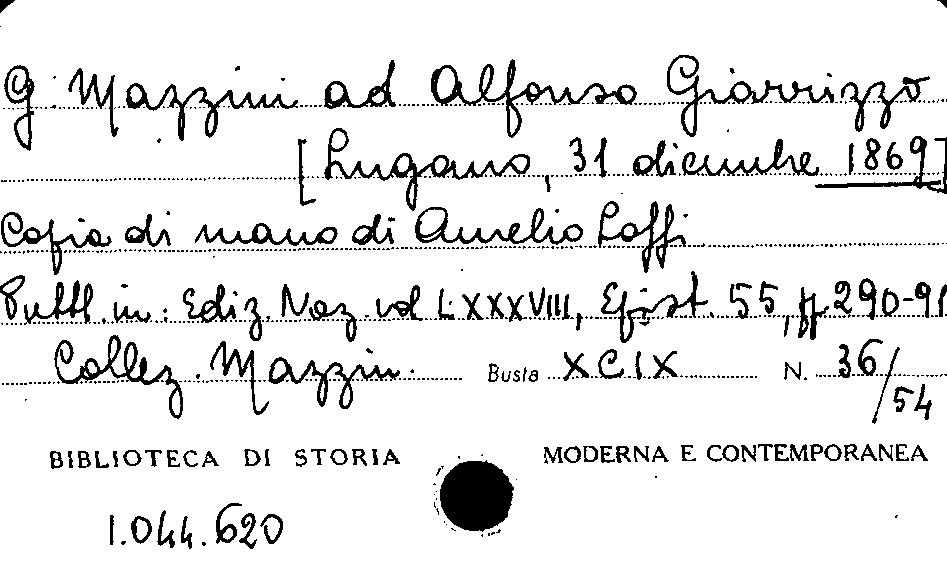 G. Mazzini ad Alfonso Giarrizzo
[Lugano, 31 dicembre 1869]
Copia di mano di Aurelio Saffi
Pubbl. in: Ediz. Naz. vol LXXXVIII, Epist. 55, pp. 290-91
Collez. Mazzin. Busta XCIX N. 36/54
BIBLIOTECA DI STORIA MODERNA E CONTEMPORANEA
1.044.620